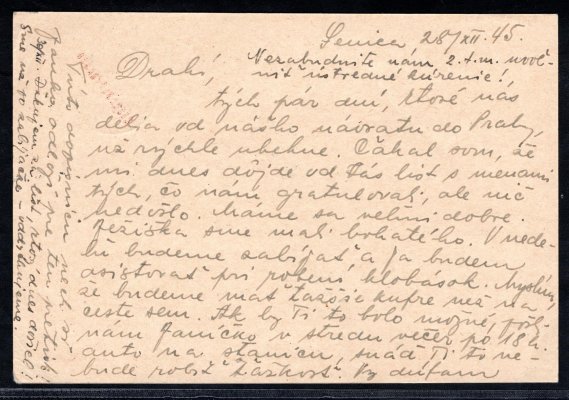 Senica 28/XII 45.
Drahí,
Nezabudnite nám 2. t. m. uvoľ-
niť ústredné kúrenie!,
tých pár dní, ktoré nás
delia od nášho návratu do Prahy,
už rýchle ubehne. Čakal som, že
mi dnes dôjde od Vás list s menami
tých, čo nám gratulovali, ale nič
nedošlo. Máme sa veľmi dobre.
Ježiška sme mali bohatého. V nede-
ľu budeme zabíjať a ja budem
asistovať pri robení klobások. Myslím,
že budeme mať ťažšie kufre než na
ceste sem. Ak by Ti to bolo možné, pošli
nám Janíčko v stredu večer po 18 h.
auto na stanicu, snáď Ti to ne-
bude robiť ťažkosť. Vy dúfam
Túto dopisnicu nech si
Janko odloží pre ten pretisk!
Ďakujem za list, ktorý dnes došiel!
Sme na to zabíjačke – vddržujeme